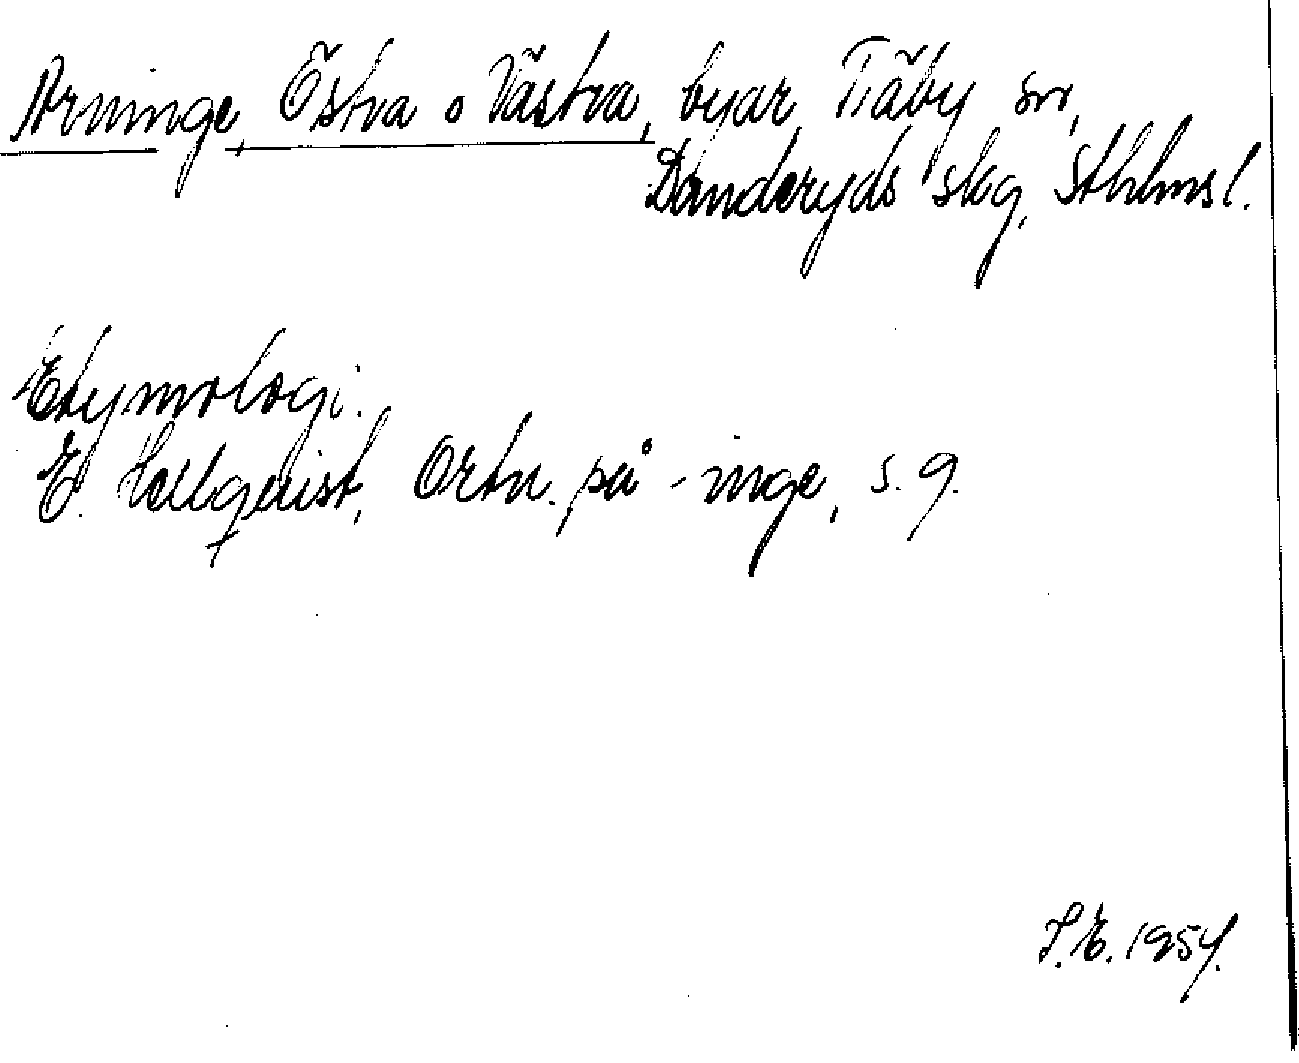 Arninge, Östra o Västra, byar, Täby sn,
Danderyds skg, Sthlms l.
Etymologi.
E. Hellquist, Ortn. på -inge, s. 9.
S.E. 1954.